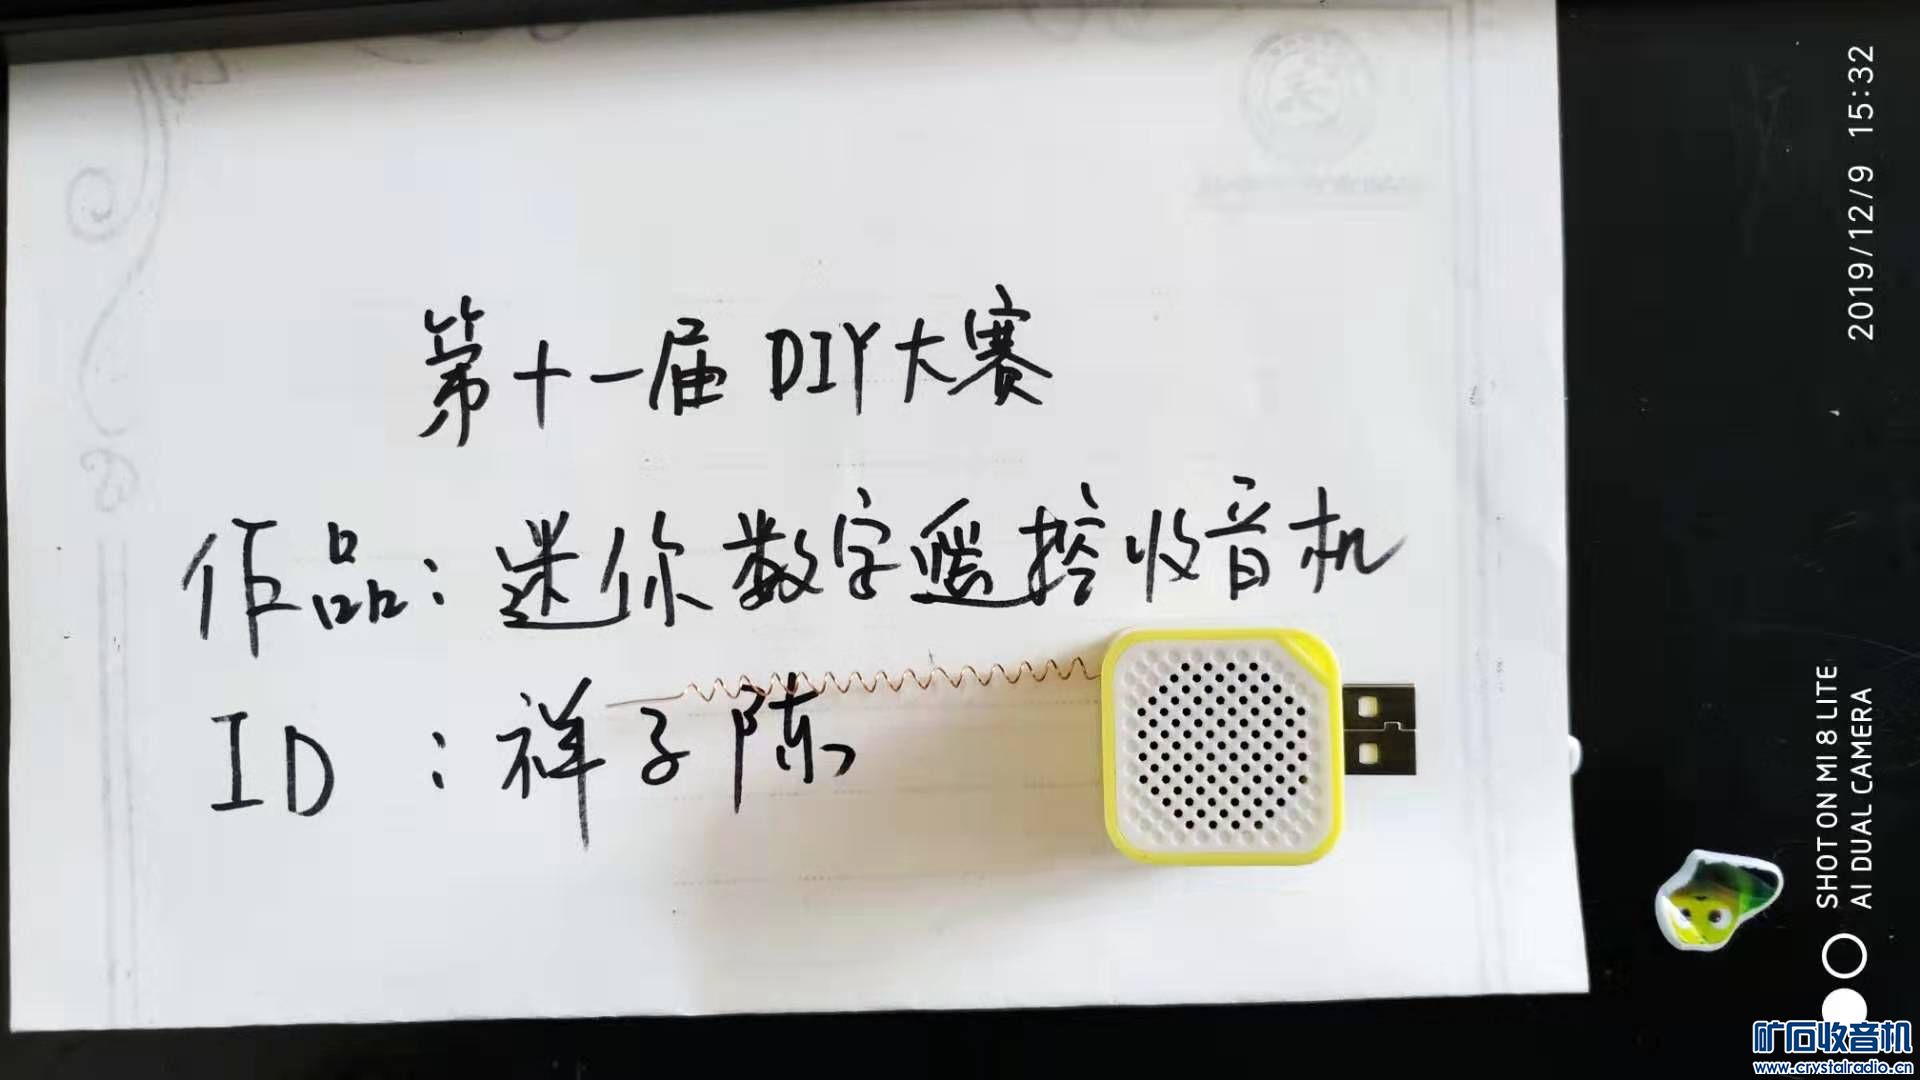 第十一届 DIY大赛
作品：迷你数字遥控收音机
ID：祥子陈
2019/12/9 15:32
SHOT ON MI 8 LITE
AI DUAL CAMERA
矿石收音机
www.crystalradio.cn